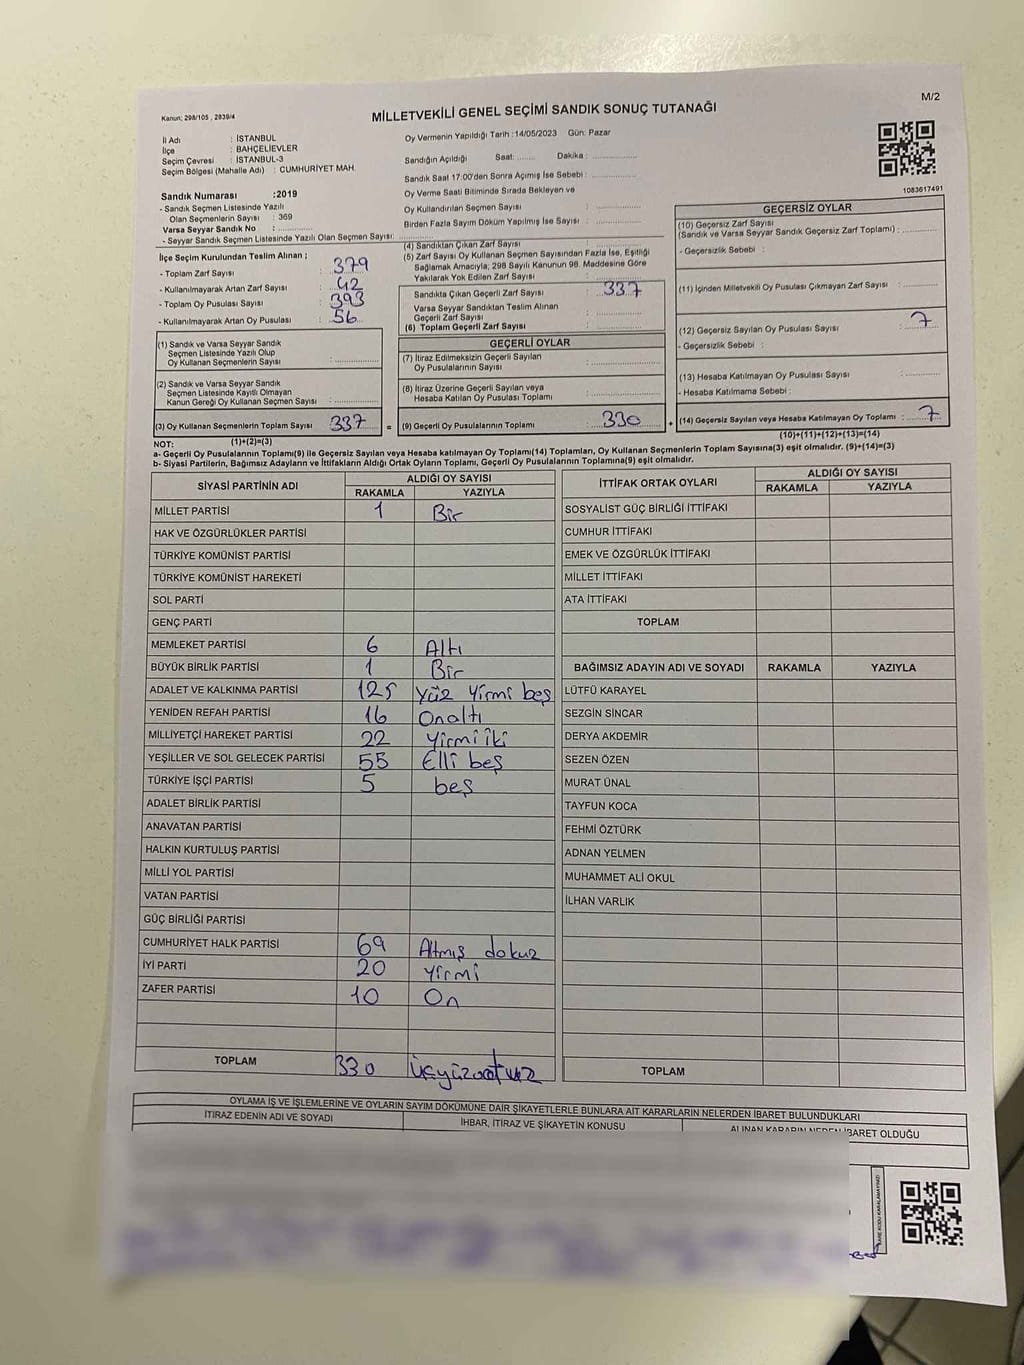 Kanun; 298/105 , 2839/4
MİLLETVEKİLİ GENEL SEÇİMİ SANDIK SONUÇ TUTANAĞI
M/2
İl Adı : İSTANBUL
İlçe : BAHÇELİEVLER
Seçim Çevresi : İSTANBUL-3
Seçim Bölgesi (Mahalle Adı) : CUMHURİYET MAH.
Sandık Numarası :2019
- Sandık Seçmen Listesinde Yazılı
Olan Seçmenlerin Sayısı : 369
Varsa Seyyar Sandık No :
- Seyyar Sandık Seçmen Listesinde Yazılı Olan Seçmen Sayısı:
İlçe Seçim Kurulundan Teslim Alınan ;
- Toplam Zarf Sayısı : 379
- Kullanılmayarak Artan Zarf Sayısı : 42
- Toplam Oy Pusulası Sayısı : 393
- Kullanılmayarak Artan Oy Pusulası : 56
(1) Sandık ve Varsa Seyyar Sandık
Seçmen Listesinde Yazılı Olup
Oy Kullanan Seçmenlerin Sayısı :
(2) Sandık ve Varsa Seyyar Sandık
Seçmen Listesinde Kayıtlı Olmayan
Kanun Gereği Oy Kullanan Seçmen Sayısı :
(3) Oy Kullanan Seçmenlerin Toplam Sayısı : 337 =
(1)+(2)=(3)
Oy Vermenin Yapıldığı Tarih :14/05/2023 Gün: Pazar
Sandığın Açıldığı Saat: Dakika :
Sandık Saat 17:00'den Sonra Açımış İse Sebebi :
Oy Verme Saati Bitiminde Sırada Bekleyen ve
Oy Kullandırılan Seçmen Sayısı :
Birden Fazla Sayım Döküm Yapılmış İse Sayısı :
(4) Sandıktan Çıkan Zarf Sayısı :
(5) Zarf Sayısı Oy Kullanan Seçmen Sayısından Fazla İse, Eşitliği
Sağlamak Amacıyla; 298 Sayılı Kanunun 98. Maddesine Göre
Yakılarak Yok Edilen Zarf Sayısı :
Sandıkta Çıkan Geçerli Zarf Sayısı : 337
Varsa Seyyar Sandıktan Teslim Alınan
Geçerli Zarf Sayısı :
(6) Toplam Geçerli Zarf Sayısı :
GEÇERLİ OYLAR
(7) İtiraz Edilmeksizin Geçerli Sayılan
Oy Pusulalarının Sayısı :
(8) İtiraz Üzerine Geçerli Sayılan veya
Hesaba Katılan Oy Pusulası Toplamı :
(9) Geçerli Oy Pusulalarının Toplamı : 330 +
1083617491
GEÇERSİZ OYLAR
(10) Geçersiz Zarf Sayısı
(Sandık ve Varsa Seyyar Sandık Geçersiz Zarf Toplamı) :
- Geçersizlik Sebebi :
(11) İçinden Milletvekili Oy Pusulası Çıkmayan Zarf Sayısı :
(12) Geçersiz Sayılan Oy Pusulası Sayısı : 7
- Geçersizlik Sebebi :
(13) Hesaba Katılmayan Oy Pusulası Sayısı :
- Hesaba Katılmama Sebebi :
(14) Geçersiz Sayılan veya Hesaba Katılmayan Oy Toplamı : 7
(10)+(11)+(12)+(13)=(14)
NOT:
a- Geçerli Oy Pusulalarının Toplamı(9) ile Geçersiz Sayılan veya Hesaba katılmayan oy Toplamı(14) Toplamları, Oy Kullanan Seçmenlerin Toplam Sayısına(3) eşit olmalıdır. (9)+(14)=(3)
b- Siyasi Partilerin, Bağımsız Adayların ve İttifakların Aldığı Ortak Oyların Toplamı, Geçerli Oy Pusulalarının Toplamına(9) eşit olmalıdır.
SİYASİ PARTİNİN ADI ALDIĞI OY SAYISI
RAKAMLA YAZIYLA
MİLLET PARTİSİ 1 Bir
HAK VE ÖZGÜRLÜKLER PARTİSİ
TÜRKİYE KOMÜNİST PARTİSİ
TÜRKİYE KOMÜNİST HAREKETİ
SOL PARTİ
GENÇ PARTİ
MEMLEKET PARTİSİ 6 Altı
BÜYÜK BİRLİK PARTİSİ 1 Bir
ADALET VE KALKINMA PARTİSİ 125 Yüz Yirmi beş
YENİDEN REFAH PARTİSİ 16 Onaltı
MİLLİYETÇİ HAREKET PARTİSİ 22 Yirmi iki
YEŞİLLER VE SOL GELECEK PARTİSİ 55 Elli beş
TÜRKİYE İŞÇİ PARTİSİ 5 beş
ADALET BİRLİK PARTİSİ
ANAVATAN PARTİSİ
HALKIN KURTULUŞ PARTİSİ
MİLLİ YOL PARTİSİ
VATAN PARTİSİ
GÜÇ BİRLİĞİ PARTİSİ
CUMHURİYET HALK PARTİSİ 69 Altmış dokuz
İYİ PARTİ 20 Yirmi
ZAFER PARTİSİ 10 On
TOPLAM 330
İTTİFAK ORTAK OYLARI ALDIĞI OY SAYISI
RAKAMLA YAZIYLA
SOSYALİST GÜÇ BİRLİĞİ İTTİFAKI
CUMHUR İTTİFAKI
EMEK VE ÖZGÜRLÜK İTTİFAKI
MİLLET İTTİFAKI
ATA İTTİFAKI
TOPLAM
BAĞIMSIZ ADAYIN ADI VE SOYADI RAKAMLA YAZIYLA
LÜTFÜ KARAYEL
SEZGİN SİNCAR
DERYA AKDEMİR
SEZEN ÖZEN
MURAT ÜNAL
TAYFUN KOCA
FEHMİ ÖZTÜRK
ADNAN YELMEN
MUHAMMET ALİ OKUL
İLHAN VARLIK
TOPLAM
OYLAMA İŞ VE İŞLEMLERİNE VE OYLARIN SAYIM DÖKÜMÜNE DAİR ŞİKAYETLERLE BUNLARA AİT KARARLARIN NELERDEN İBARET BULUNDUKLARI
İTİRAZ EDENİN ADI VE SOYADI İHBAR, İTİRAZ VE ŞİKAYETİN KONUSU ALINAN KARARIN NEDEN İBARET OLDUĞU